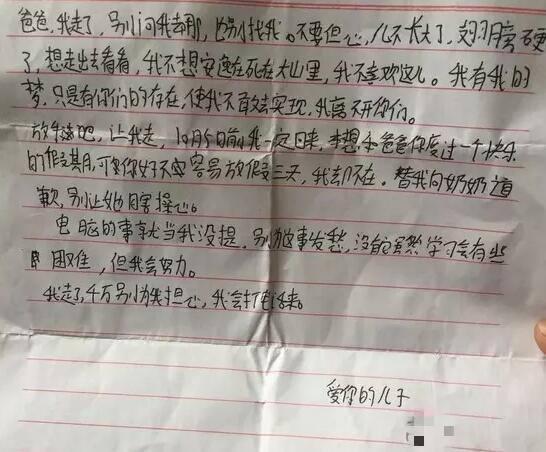 爸爸,我走了,别问我去那,也别找我。不要但心,儿不长大了,翅膀硬
了,想走出去看看,我不想安逸在死在大山里,我不喜欢这儿。我有我的
梦,只是有你们的存在,使我不敢去实现,我离不开你们。
放手吧,让我走,10月5日前我一定回来,本想和爸爸你度过一个快乐
的假其月,可是你好不容易放假三天,我去不在。替我向奶奶道
歉,别让她瞎操心。
电脑的事就当我没提,别为这事发愁,没的虽然学习会有些
困难,但我会努力。
我走了,千万别为我担心,我会打电话来。
爱你的儿子